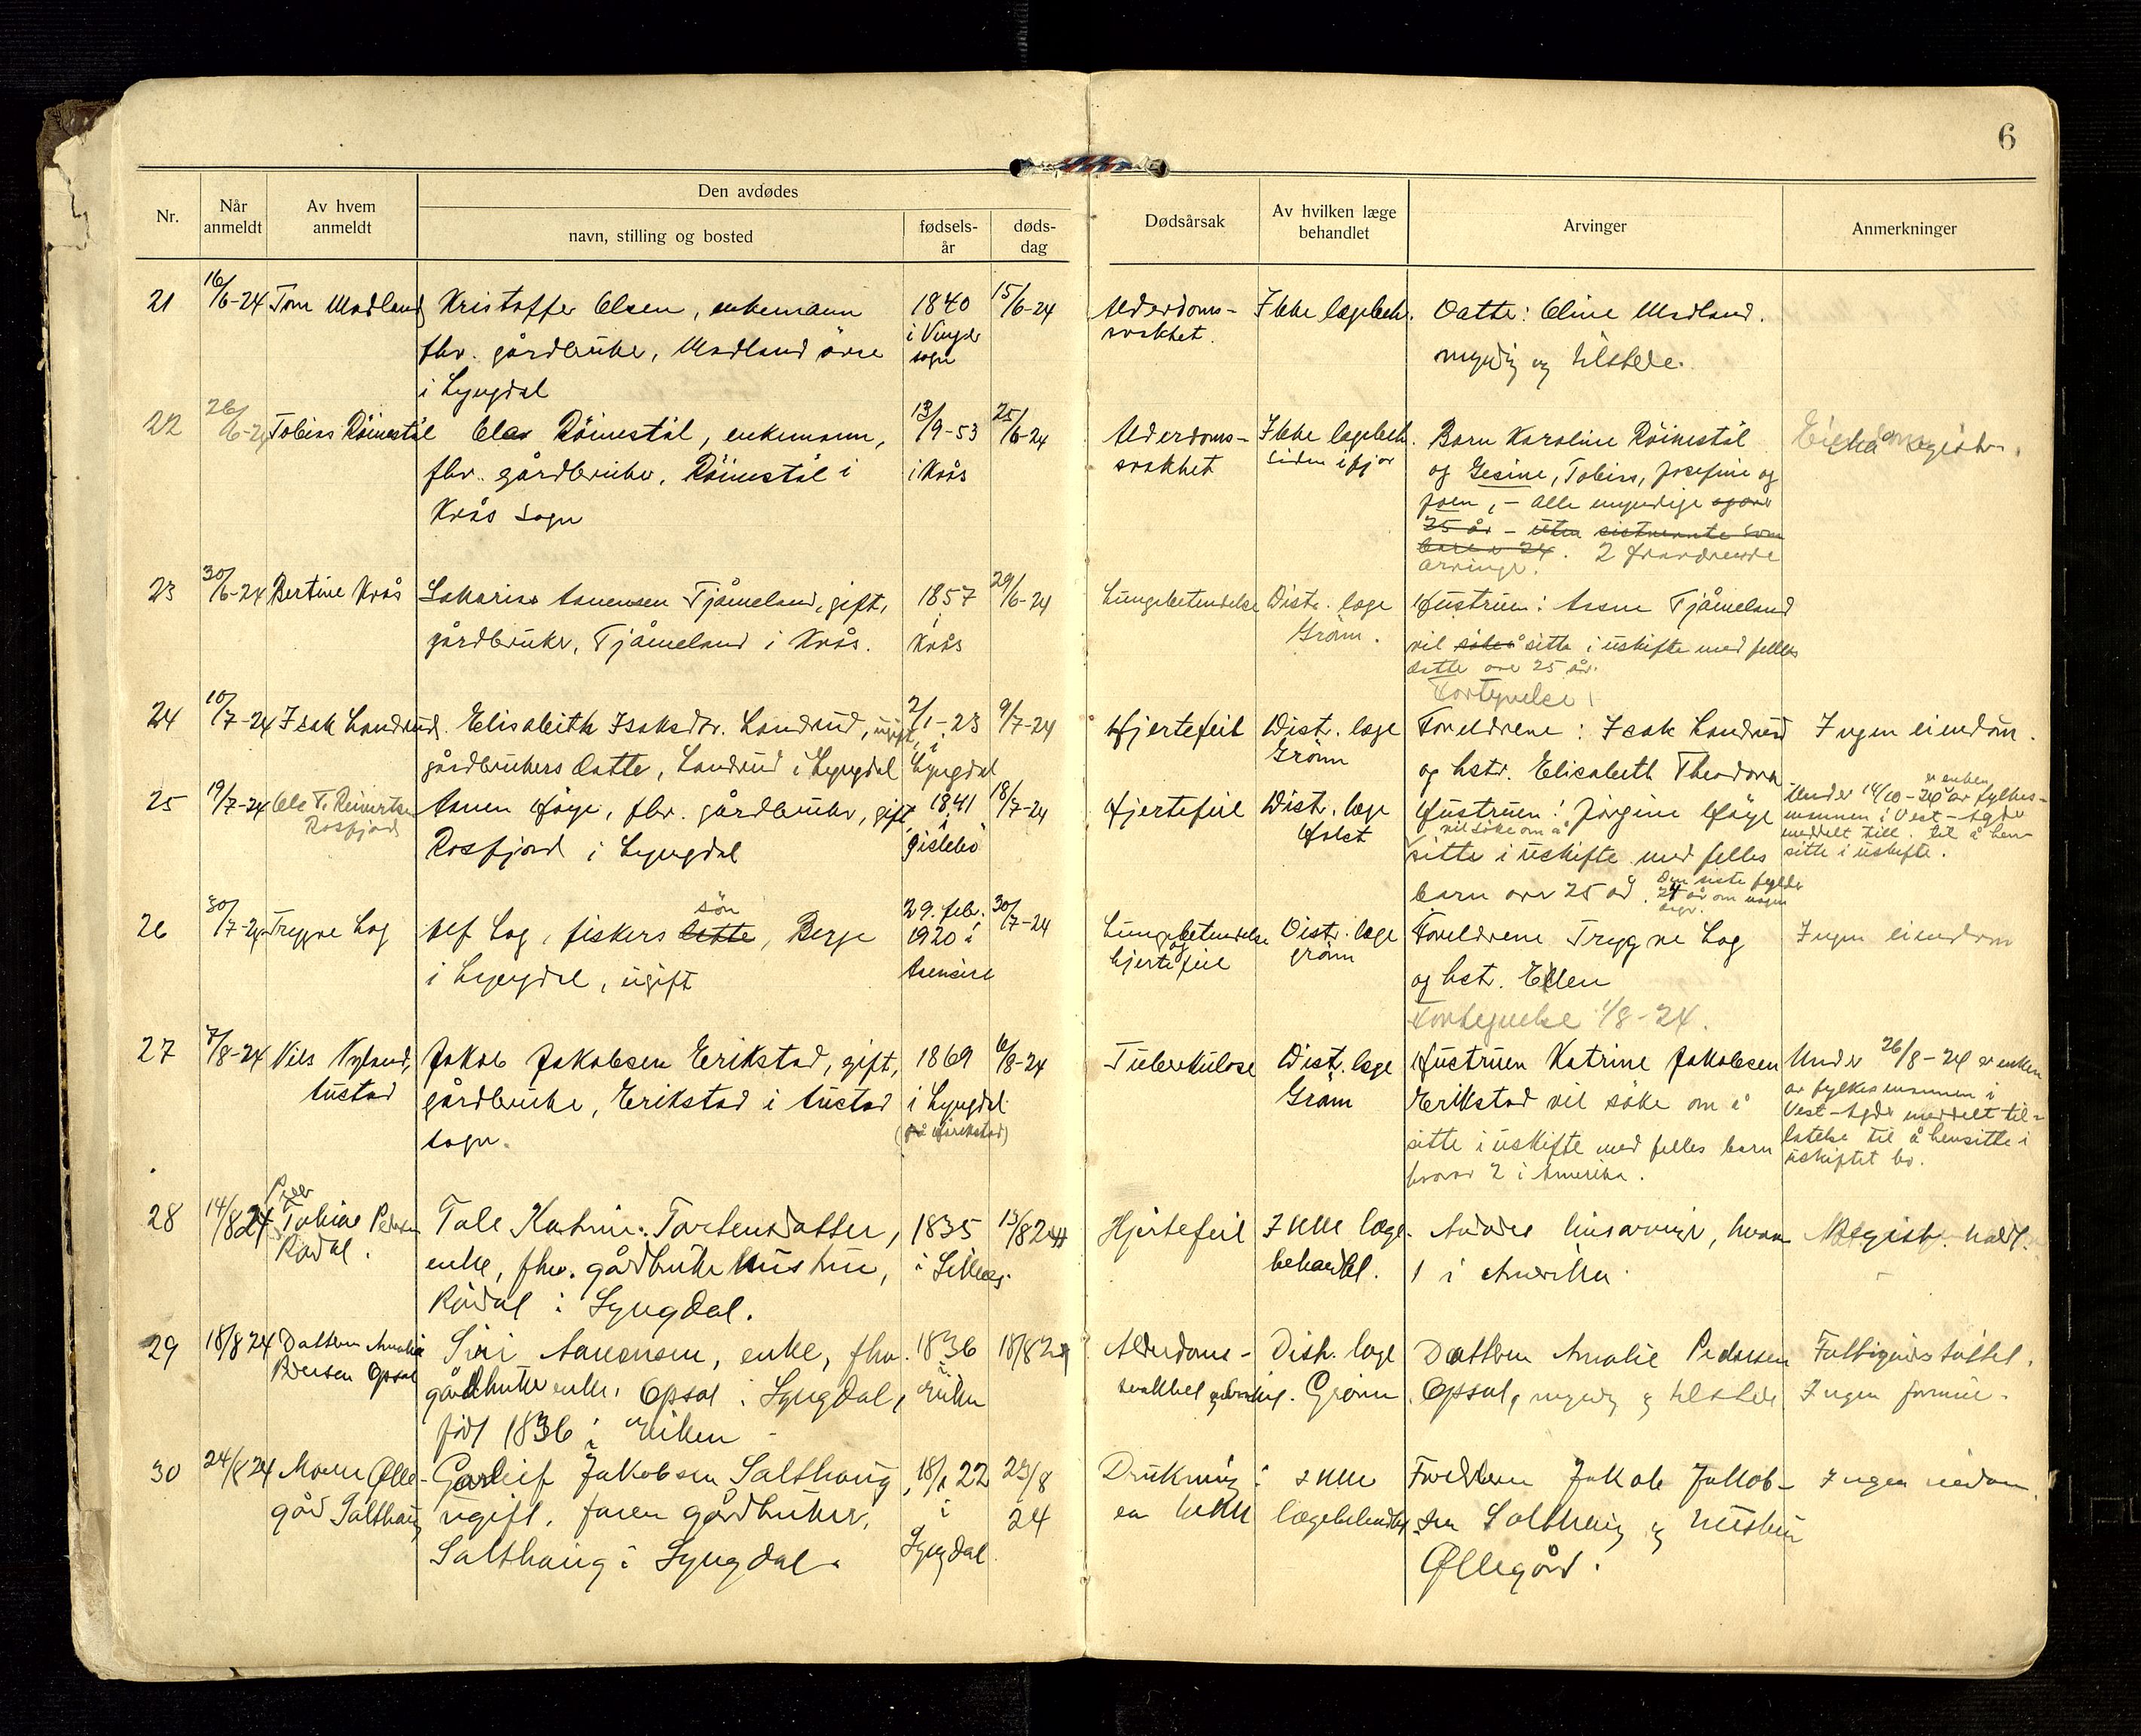 6
Den avdødes
Nr.
Når anmeldt
Av hvem anmeldt
navn, stilling og bosted
fødsels-år
døds-dag
Dødsårsak
Av hvilken læge behandlet
Arvinger
Anmerkninger
21 16/6-24 Tom Madland Kristoffer Olsen, enkemann 1840 15/6-24 Alderdoms- Ikke lægebeh. Datte: Oline Madland.
fhv. gårdbruker, Madland övre i svakhet. myndig og tilstede.
sogn
i Lyngdal
22 26/6-24 Tobias Röinestål Olav Röinestål, enkemann, 13/9-53 25/6-24 Alderdoms- Ikke lægebeh. Barn Karoline Röinestål
fhv. gårdbruker, Röinestål i i Kvås svakhet siden ifjor og Gesine, Tobias, Josefine og
Kvås sogn
- alle myndige
25 år - uten sistnevnte som
bare er 24. 2 fraværende
arvinger.
23 30/6-24 Bertine Kvås Sakarias Aanensen Tjåmeland, gift, 1857 29/6-24 Lungebetendelse Distr. læge Hustruen: Asene Tjåmeland
gårdbruker, Tjåmeland i Kvås. i Kvås Gröm. vil sitte i uskifte med felles
datte over 25 år.
Fortegnelse
24 10/7-24 Isak Landrud. Elisabeth Isaksdtr. Landrud, ugift, 2/1-23 9/7-24 Hjertefeil Distr. læge Foreldrene: Isak Landrud Ingen eiendom.
gårdbrukers datte, Landrud i Lyngdal i Lyngdal Grömm og hstr. Elisabeth Theodora
25 19/7-24 Ole T. Reinertsen Aanen Höye, fhv. gårdbruker, gift, 1841 18/7-24 Hjertefeil Distr. læge Hustruen: Jörgine Höye Under 14/10-24 er enken av fylkes-
Rosfjord Rosfjord i Lyngdal i Gislebö Holst vil söke om å mannen i Vest-Agder
sitte i uskifte med felles meddelt till. til å hen-
sitte i uskifte.
barn over 25 år. Den siste fyller
24 år om nogen
dage.
26 30/7-24 Trygve Log Alf Log, fiskers datte sön, Berge 29. febr. 30/7-24 Lungebetendelse Distr. læge Foreldrene Trygve Log Ingen eiendom
i Lyngdal, ugift 1920 i og hjertefeil Gröm og hst. Ellen
Fortegnelse 1/8-24.
27 7/8-24 Nils Nyland, Jakob Jakobsen Erikstad, gift, 1869 6/8-24 Tuberkulose Distr. læge Hustruen Katrine Jakobsen Under 26/8-24 er enken
Austad gårdbruker, Erikstad i Austad i Lyngdal Gröm Erikstad vil söke om å av fylkesmannen i
sogn. sitte i uskifte med felles barn Vest-Agder meddelt til-
latelse til å hensitte i
hvorav 2 i Amerika. uskiftet bo.
28 14/8 24 Tobias Pedersen Tale Katrin. Torkensdatter, 1835 13/8 24 Hjertefeil Ikke læge- Avdödes livsarvinger, hvorav Registr. holdt.
Rödal. enke, fhv. gårdbruker hustru, i behandlet. 1 i Amerika.
Rödal i Lyngdal.
29 18/8 24 Datteren Amalie Siri Aanensen, enke, fhv. 1836 18/8 24 Alderdoms- Distr. læge Datteren Amalie Pedersen Fattigunderstöttet.
Pedersen Opsal gårdbruker enke, Opsal i Lyngdal, i Eiken svakhet Grömm. Opsal, myndig og tilstede Ingen formue.
född 1836 i Eiken
30 24/8 24 Moren Ølle- Gerleif Jakobsen Salthaug 18/1 22 23/8 Drukning i Ikke Foreldrene Jakob Jakob- Ingen eiendom.
gård Salthaug ugift, faren gårdbruker, i 24 en bekk lægebehandlet sen Salthaug og hustru
Salthaug i Lyngdal. Lyngdal. Øllegård.